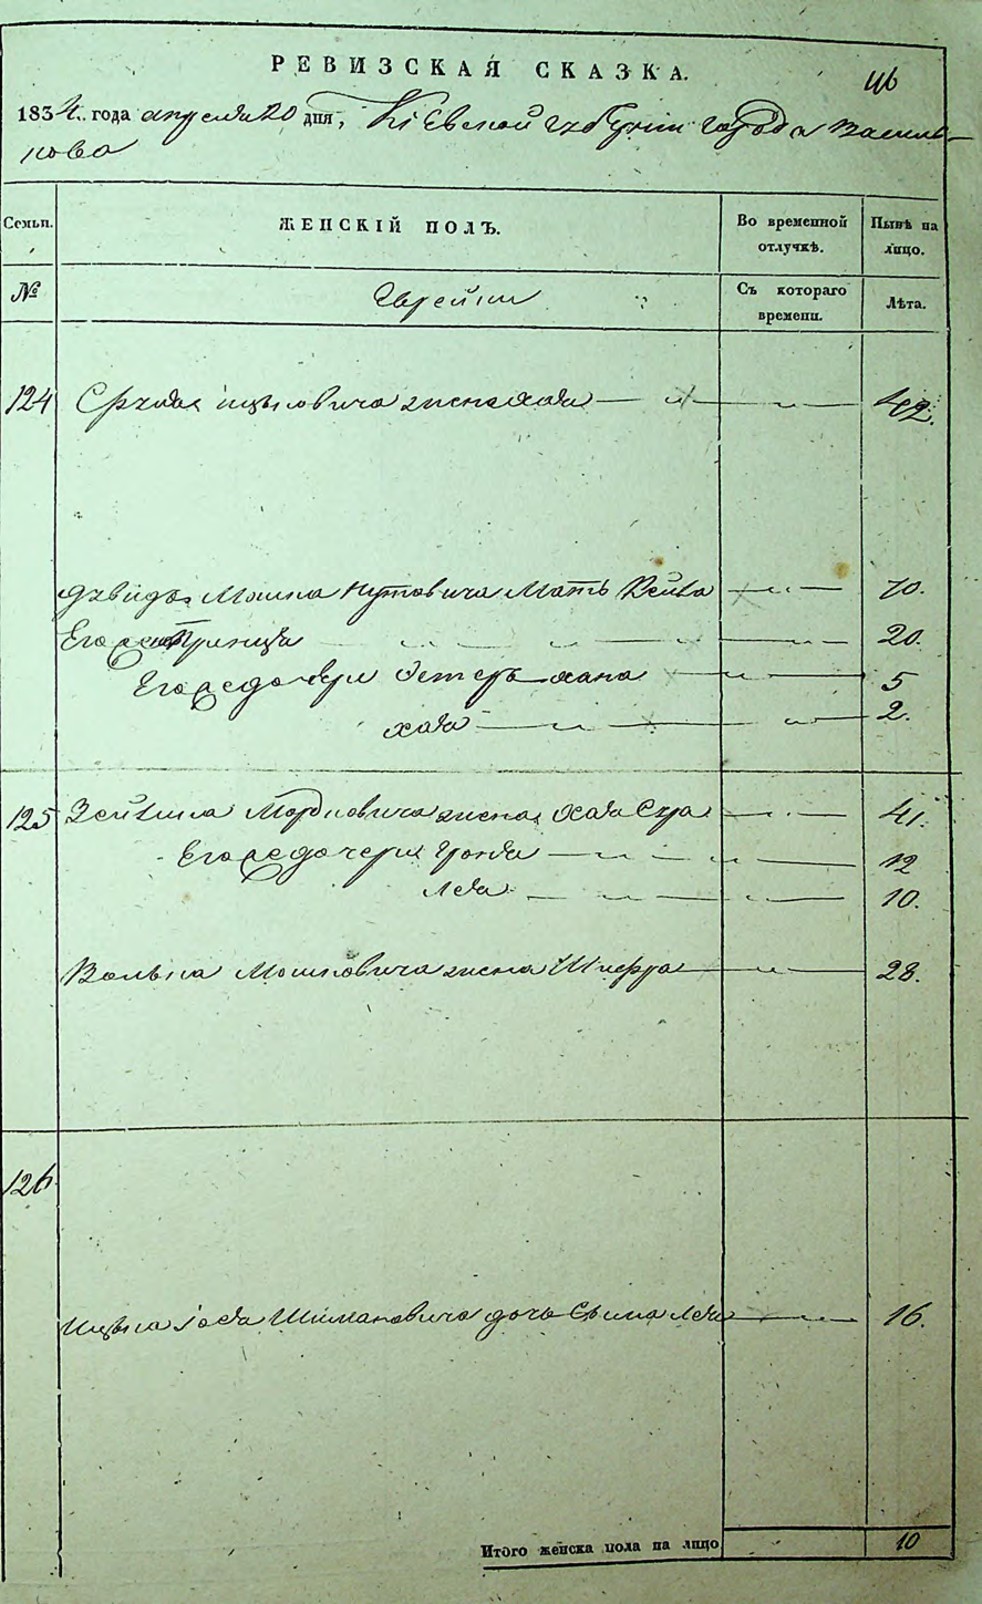 РЕВИЗСКАЯ СКАЗКА.
46
1834 года апреля 20 дня, Кіевской губерніи города Василь-
кова
Семьи. ЖЕНСКІЙ ПОЛЪ. Во временной отлучкѣ. Нынѣ на лицо.
№ Еврейки Съ котораго времени. Лѣта.
124 Ицковича жена Хая 42.
Мошка Мать Бейла 70.
Его жена 20.
Его же дочери Естеръ Хана 5
Хая 2.
125 Мордковича жена Хая Сура 41.
Его же дочери 12
Лея 10.
Волька Мошковича жена Шифра 28.
126
Ицька Шимановича дочь Лея 16.
Итого женска пола на лицо 10